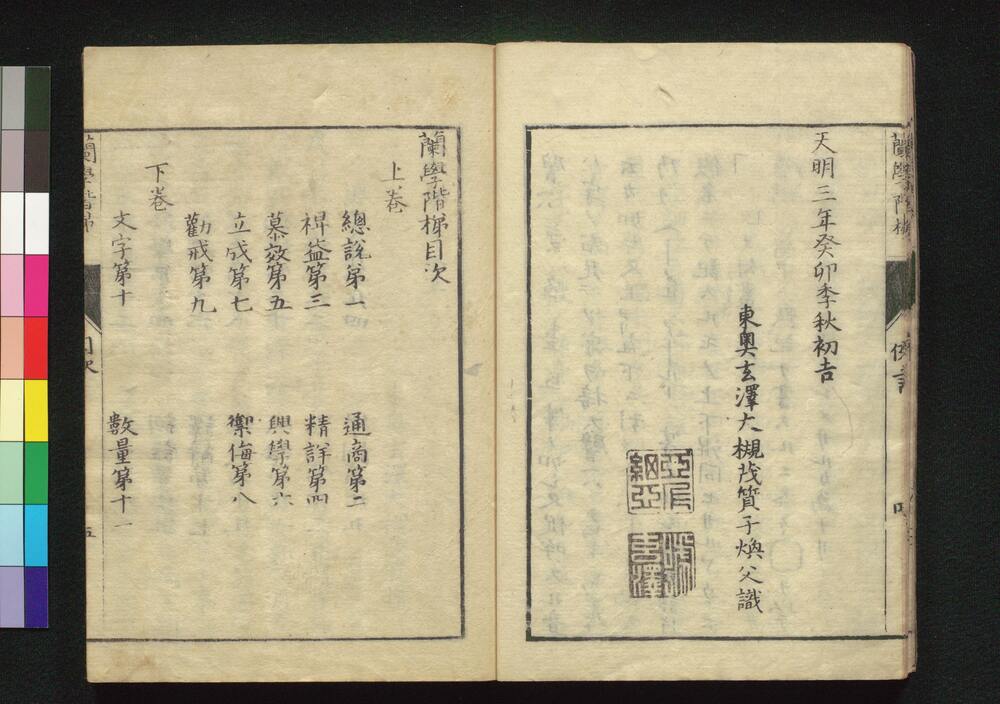 天明三年癸卯季秋初吉
東奥玄澤大槻茂質子煥父識
蘭學階梯目次
上巻
總說第一
通商第二
裨益第三
精詳第四
慕效第五
興學第六
立成第七
禦侮第八
勸戒第九
下巻
文字第十
數量第十一
蘭學階梯
目次
五